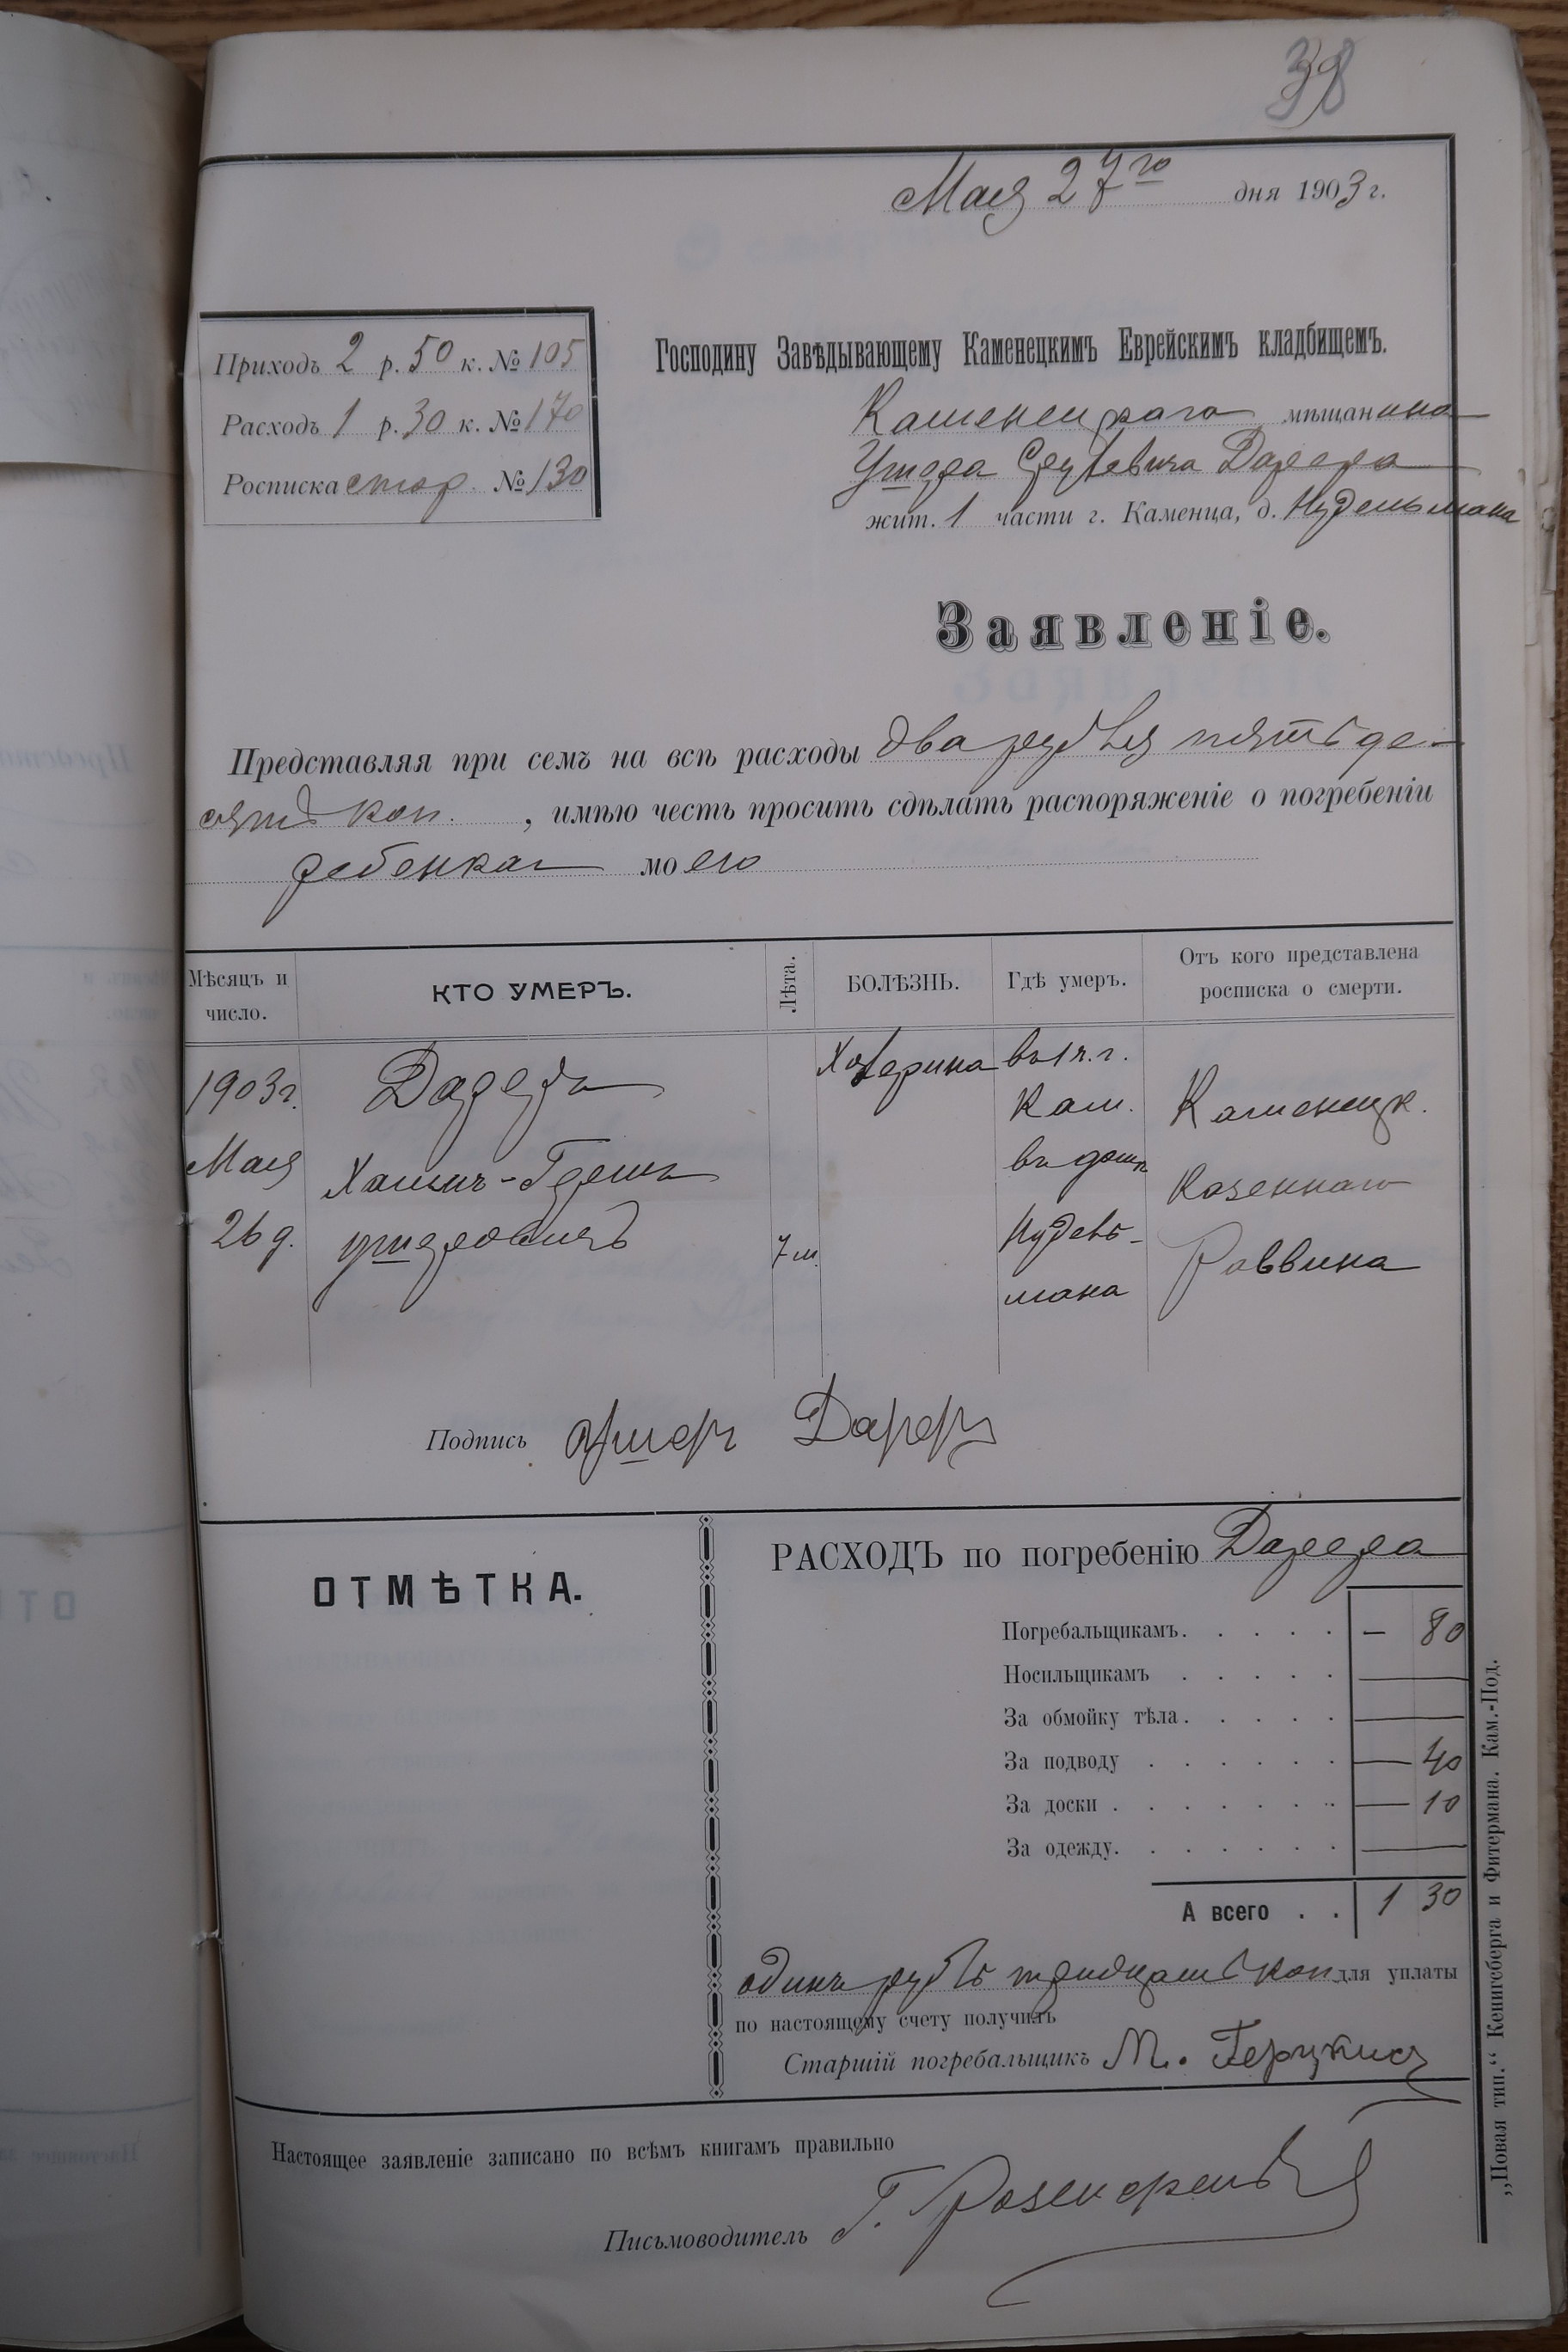 38
Мая 27го дня 1903 г.
Приходъ 2 р. 50 к. № 105
Расходъ 1 р. 30 к. № 170
Росписка стор. № 130
Господину Завѣдывающему Каменецкимъ Еврейскимъ кладбищемъ.
Каменецкаго мѣщанина
Ушера Дарера
жит. 1 части г. Каменца, д. Нудельмана
Заявленіе.
Представляя при семъ на всѣ расходы два рубля пятьде-
сятъ коп. , имѣю честь просить сдѣлать распоряженіе о погребеніи
ребенка моего
Мѣсяцъ и число. КТО УМЕРЪ. Лѣта. БОЛѢЗНЬ. Гдѣ умеръ. Отъ кого представлена росписка о смерти.
1903 г. Дареръ Холерина въ 1 ч. г.
Кам. Каменецк.
Мая Хаимъ- въ домѣ Казеннаго
26 д. Ушеровичъ 7 м. Нудель- Раввина
мана
Подпись Ушеръ Дареръ
ОТМѢТКА.
РАСХОДЪ по погребенію Дарера
Погребальщикамъ. . . . . — 80
Носильщикамъ . . . . . —
За обмойку тѣла. . . . . —
За подводу . . . . . . — 40
За доски . . . . . . . — 10
За одежду. . . . . . . —
А всего . . 1 30
одинъ рубль тридцать коп для уплаты
по настоящему счету получилъ
Старшій погребальщикъ М.
Настоящее заявленіе записано по всѣмъ книгамъ правильно
Письмоводитель Г.
„Новая тип.“ Кенигсберга и Фитермана. Кам.-Под.